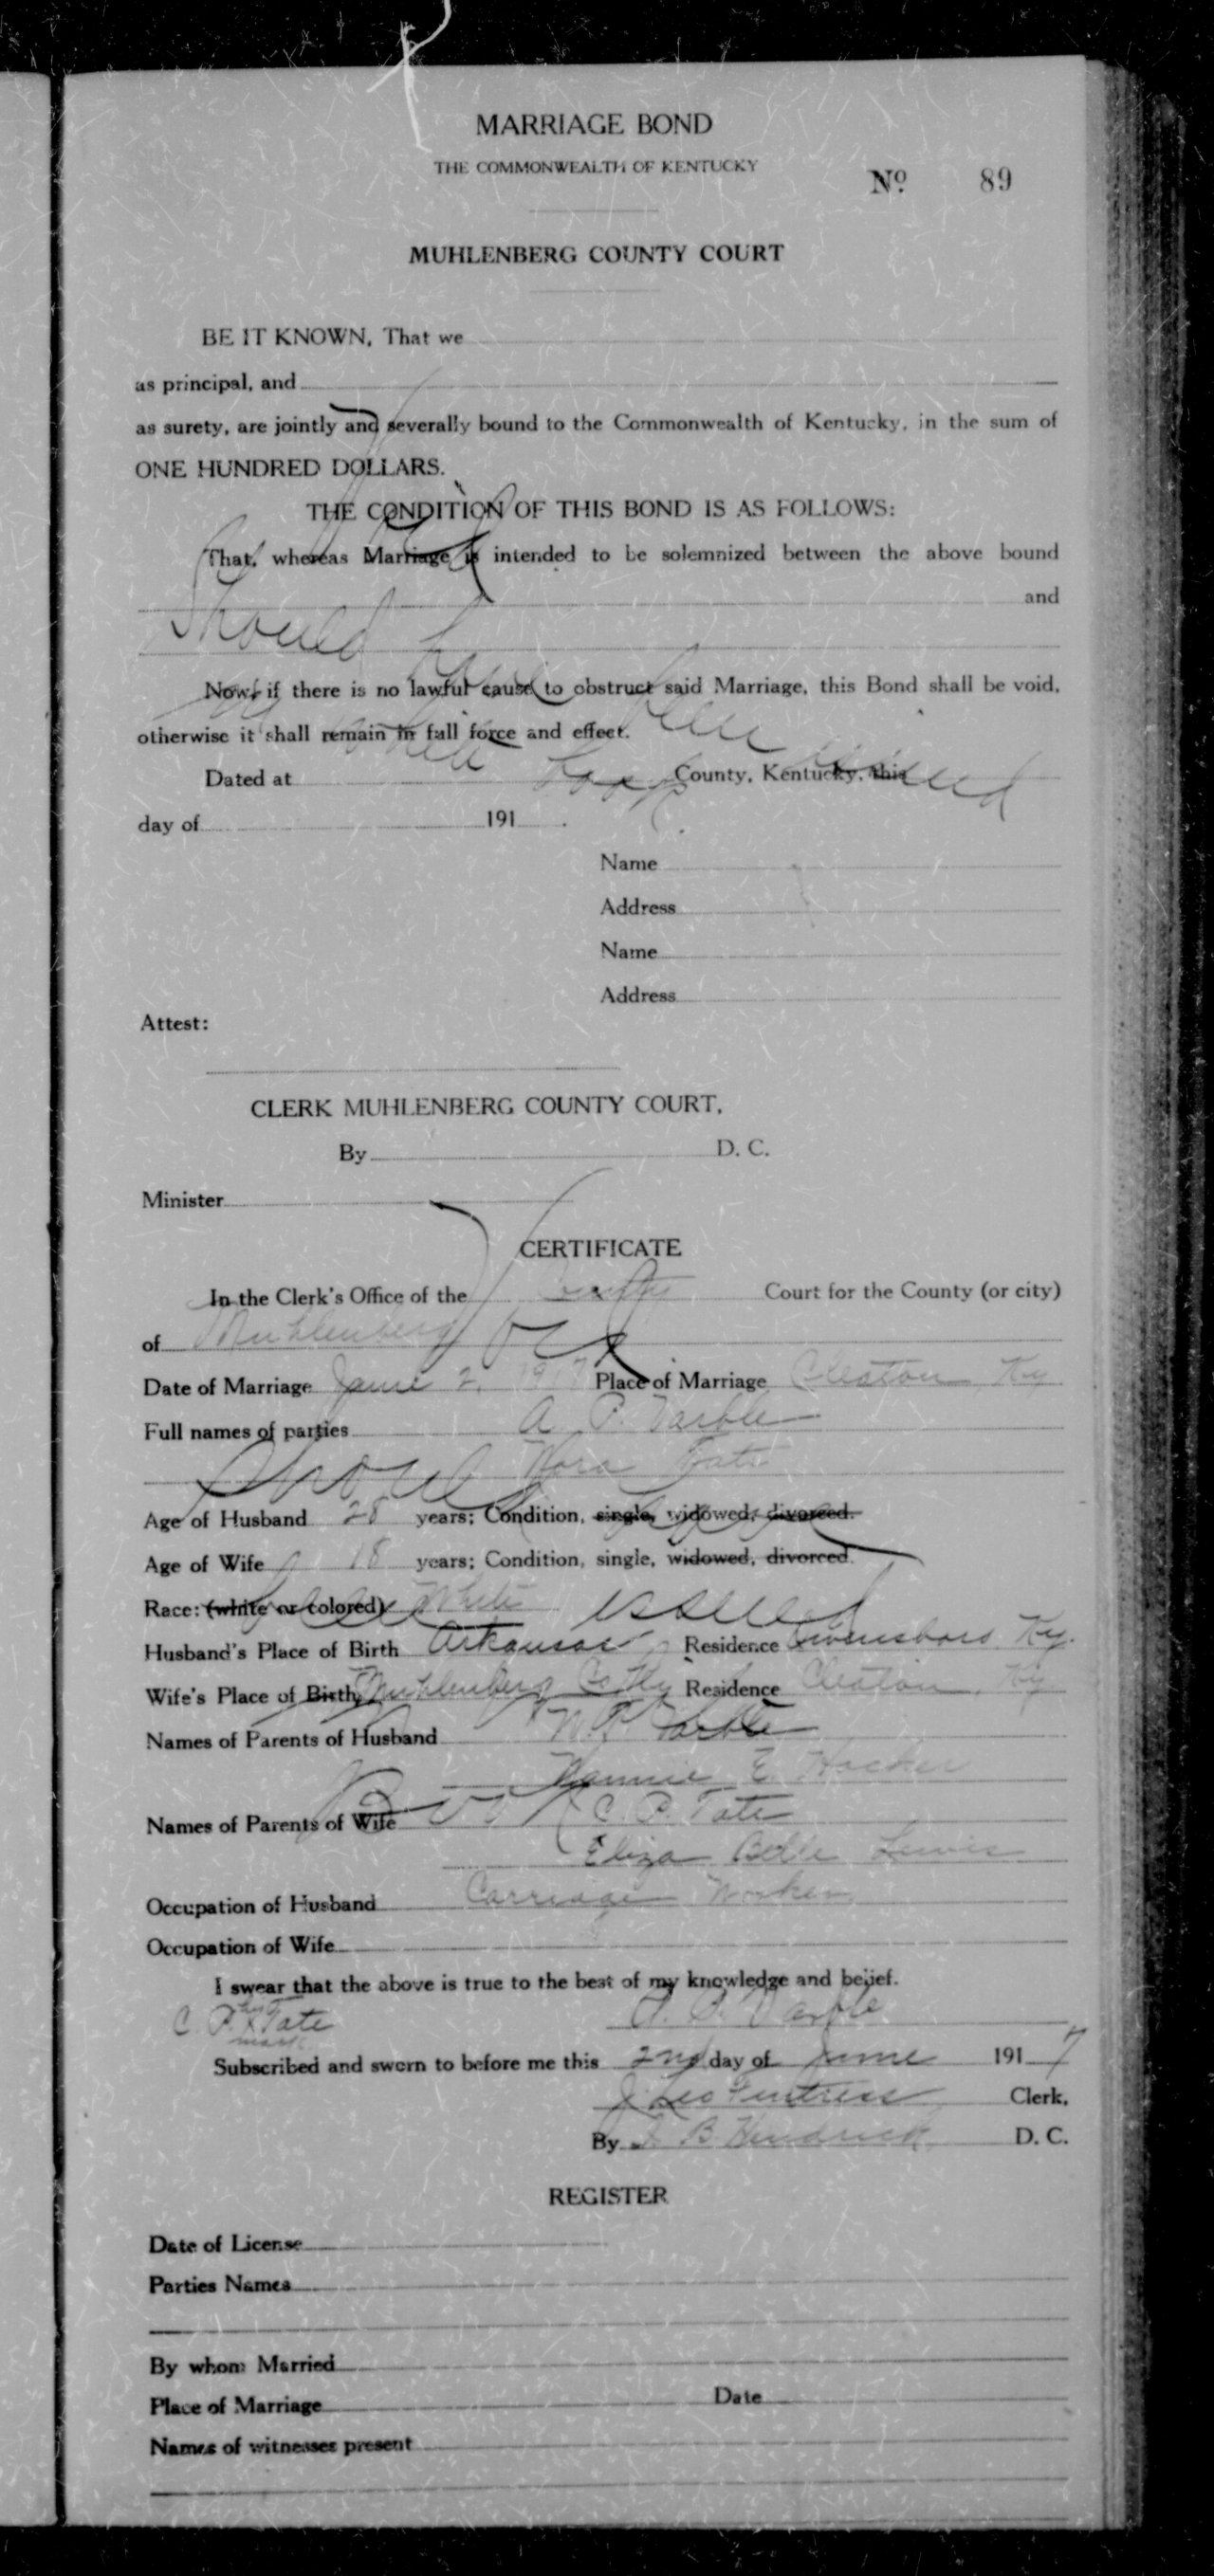 MARRIAGE BOND
THE COMMONWEALTH OF KENTUCKY
No. 89
MUHLENBERG COUNTY COURT
BE IT KNOWN, That we
as principal, and
as surety, are jointly and severally bound to the Commonwealth of Kentucky, in the sum of
ONE HUNDRED DOLLARS.
THE CONDITION OF THIS BOND IS AS FOLLOWS:
That, whereas Marriage is intended to be solemnized between the above bound
and
Should
Now, if there is no lawful cause to obstruct said Marriage, this Bond shall be void,
otherwise it shall remain in full force and effect.
Dated at County, Kentucky, this
day of 191
Name
Address
Name
Address
Attest:
CLERK MUHLENBERG COUNTY COURT,
By D. C.
Minister
CERTIFICATE
In the Clerk's Office of the County Court for the County (or city)
of Muhlenberg
Date of Marriage June 2, 1917 Place of Marriage Cleaton Ky
Full names of parties A. P. Varble
Nora Tate
Age of Husband 28 years; Condition, single, widowed, divorced.
Age of Wife 18 years; Condition, single, widowed, divorced.
Race: (white or colored) White issued
Husband's Place of Birth Arkansas Residence Owensboro Ky.
Wife's Place of Birth Muhlenberg Co Ky Residence Cleaton, Ky
Names of Parents of Husband Varble
Nannie E. Hocker
Names of Parents of Wife C. P. Tate
Eliza Belle Lewis
Occupation of Husband Carriage Worker
Occupation of Wife
I swear that the above is true to the best of my knowledge and belief.
C. P. his x mark Tate A. P. Varble
Subscribed and sworn to before me this 2nd day of June 1917
J Leo Fentress Clerk,
By J. B. Hendrick D. C.
REGISTER
Date of License
Parties Names
By whom Married
Place of Marriage Date
Names of witnesses present